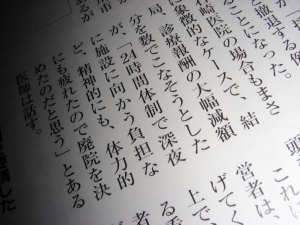 撤退する例
ることになった。
崎医院の場合もまさ
象徴的なケースで、結
局、診療報酬の大幅減額
分を数でこなそうとした
が、「24時間体制で深夜
に施設に向かう負担な
ど、精神的にも、体力的
に疲れたので廃院を決
めたのだと思う」とある
医師は話す。
これに
営者は、
げてく
上で、
る看
者
した